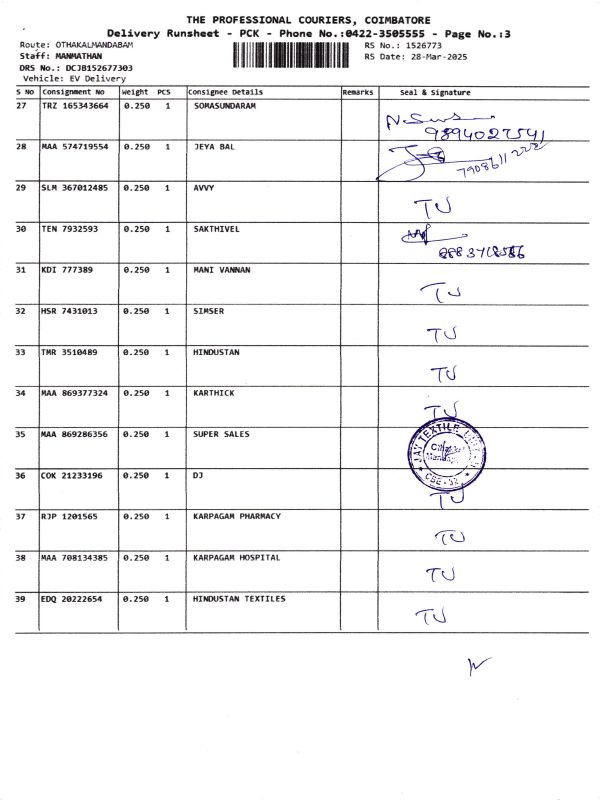 THE PROFESSIONAL COURIERS, COIMBATORE
Delivery Runsheet - PCK - Phone No.:0422-3505555 - Page No.:3
Route: OTHAKALMANDABAM RS No.: 1526773
Staff: MANMATHAN RS Date: 28-Mar-2025
DRS No.: DCJB152677303
Vehicle: EV Delivery
S No Consignment No Weight PCS Consignee Details Remarks Seal & Signature
27 TRZ 165343664 0.250 1 SOMASUNDARAM
9894027541
28 MAA 574719554 0.250 1 JEYA BAL
7908611222
29 SLM 367012485 0.250 1 AVVY TJ
30 TEN 7932593 0.250 1 SAKTHIVEL
31 KDI 777389 0.250 1 MANI VANNAN TJ
32 HSR 7431013 0.250 1 SIMSER TJ
33 TMR 3510489 0.250 1 HINDUSTAN TJ
34 MAA 869377324 0.250 1 KARTHICK TJ
35 MAA 869286356 0.250 1 SUPER SALES
JAY TEXTILE
CBE - 32
36 COK 21233196 0.250 1 DJ TJ
37 RJP 1201565 0.250 1 KARPAGAM PHARMACY TJ
38 MAA 708134385 0.250 1 KARPAGAM HOSPITAL TJ
39 EDQ 20222654 0.250 1 HINDUSTAN TEXTILES TJ